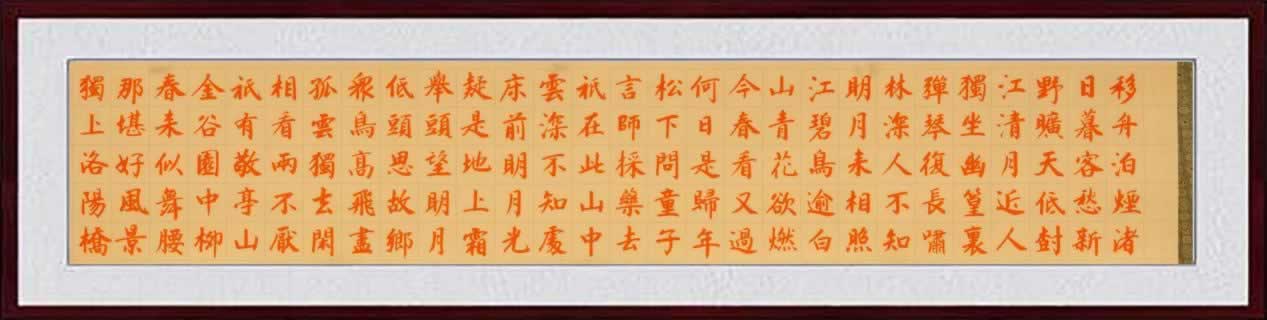 移舟泊煙渚
日暮客愁新
野曠天低封
江清月近人
獨坐幽篁裏
彈琴復長嘯
林深人不知
明月来相照
江碧鳥逾白
山青花欲燃
今春看又過
何日是歸年
松下問童子
言師採藥去
祇在此山中
雲深不知處
床前明月光
疑是地上霜
舉頭望明月
低頭思故鄉
衆鳥高飛盡
孤雲獨去閑
相看兩不厭
祇有敬亭山
金谷園中柳
春来似舞腰
那堪好風景
獨上洛陽橋